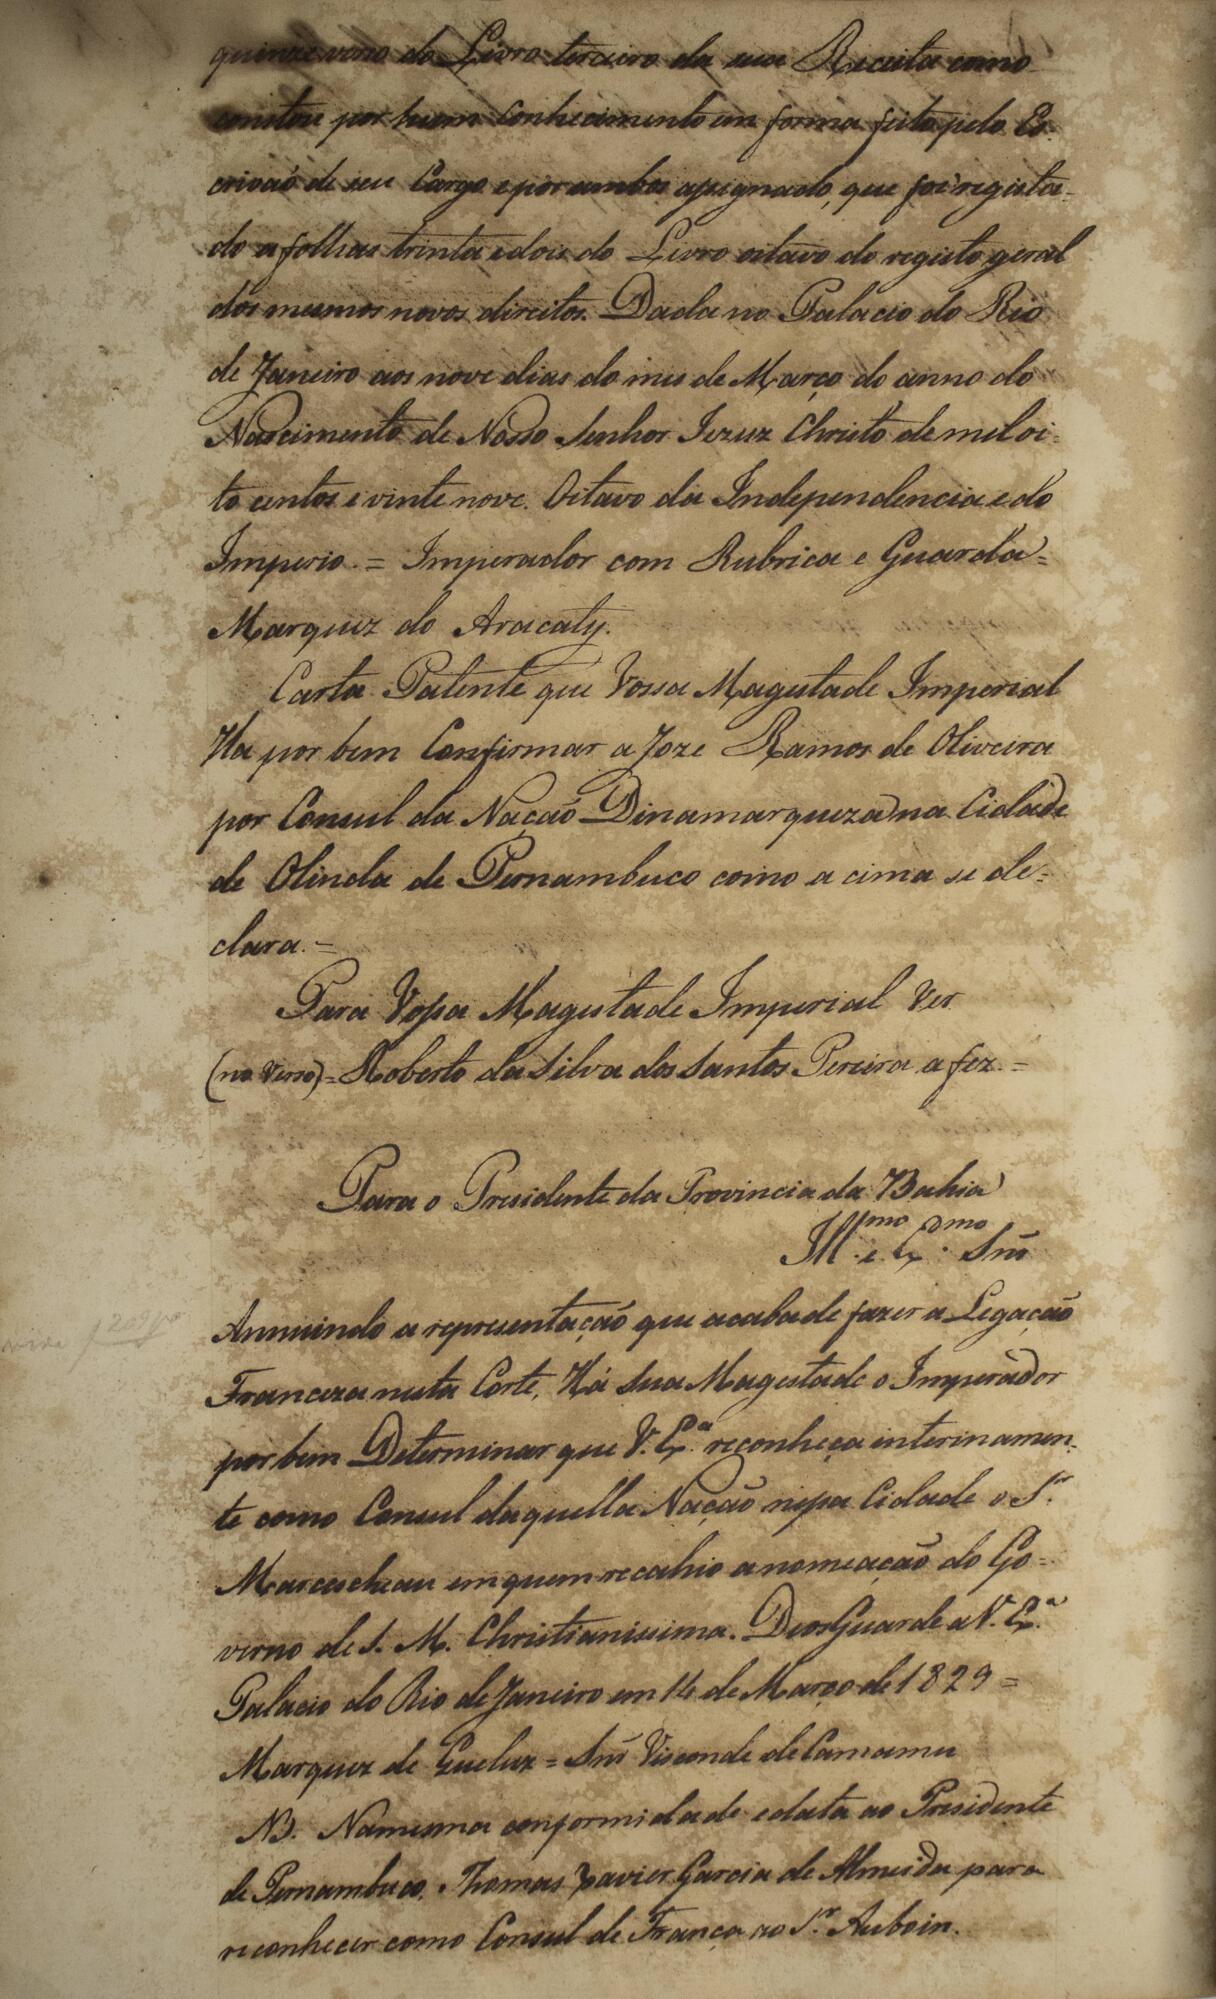 quinze verso do Livro terceiro da sua Receita como
constou por hum Conhecimento em forma feito pelo Es-
crivaõ de seu Cargo e por ambos assignado, que foi regista-
do a folhas trinta e dois do Livro oitavo do registo geral
dos mesmos novos direitos. Dada no Palacio do Rio
de Janeiro aos nove dias do mes de Março do anno do
Nascimento de Nosso Senhor Jezuz Christo de mil oi-
to centos e vinte nove. Oitavo da Independencia e do
Imperio. = Imperador com Rubrica e Guarda =
Marquez do Aracaty.
Carta Patente que Vossa Magestade Imperial
Ha por bem Confirmar a Joze Ramos de Oliveira
por Consul da Naçaõ Dinamarqueza na Cidade
de Olinda de Pernambuco como a cima se de=
clara. =
Para Vossa Magestade Imperial Ver
(no Verso) = Roberto da Silva dos Santos Pereira a fez. =
Para o Presidente da Provincia da Bahia
Ill.mo e Ex.mo Snr̃
Annuindo a representaçaõ que acaba de fazer a Legaçaõ
Franceza nesta Corte, Há Sua Magestade o Imperador
por bem Determinar que V. Ex.ª reconheça interinamen-
te como Consul daquella Naçaõ nessa Cidade o S.r
Marcescheau em quem recahio a nomeaçaõ do Go=
verno de S. M. Christianissima. Deos Guarde a V. Ex.ª
Palacio do Rio de Janeiro em 14 de Março de 1829 =
Marquez de Queluz = Snr̃ Visconde de Camamu
NB. Na mesma conformidade e data ao Presidente
de Pernambuco, Thomas Xavier Garcia de Almeida para
reconhecer como Consul de França ao S.r Auboin.